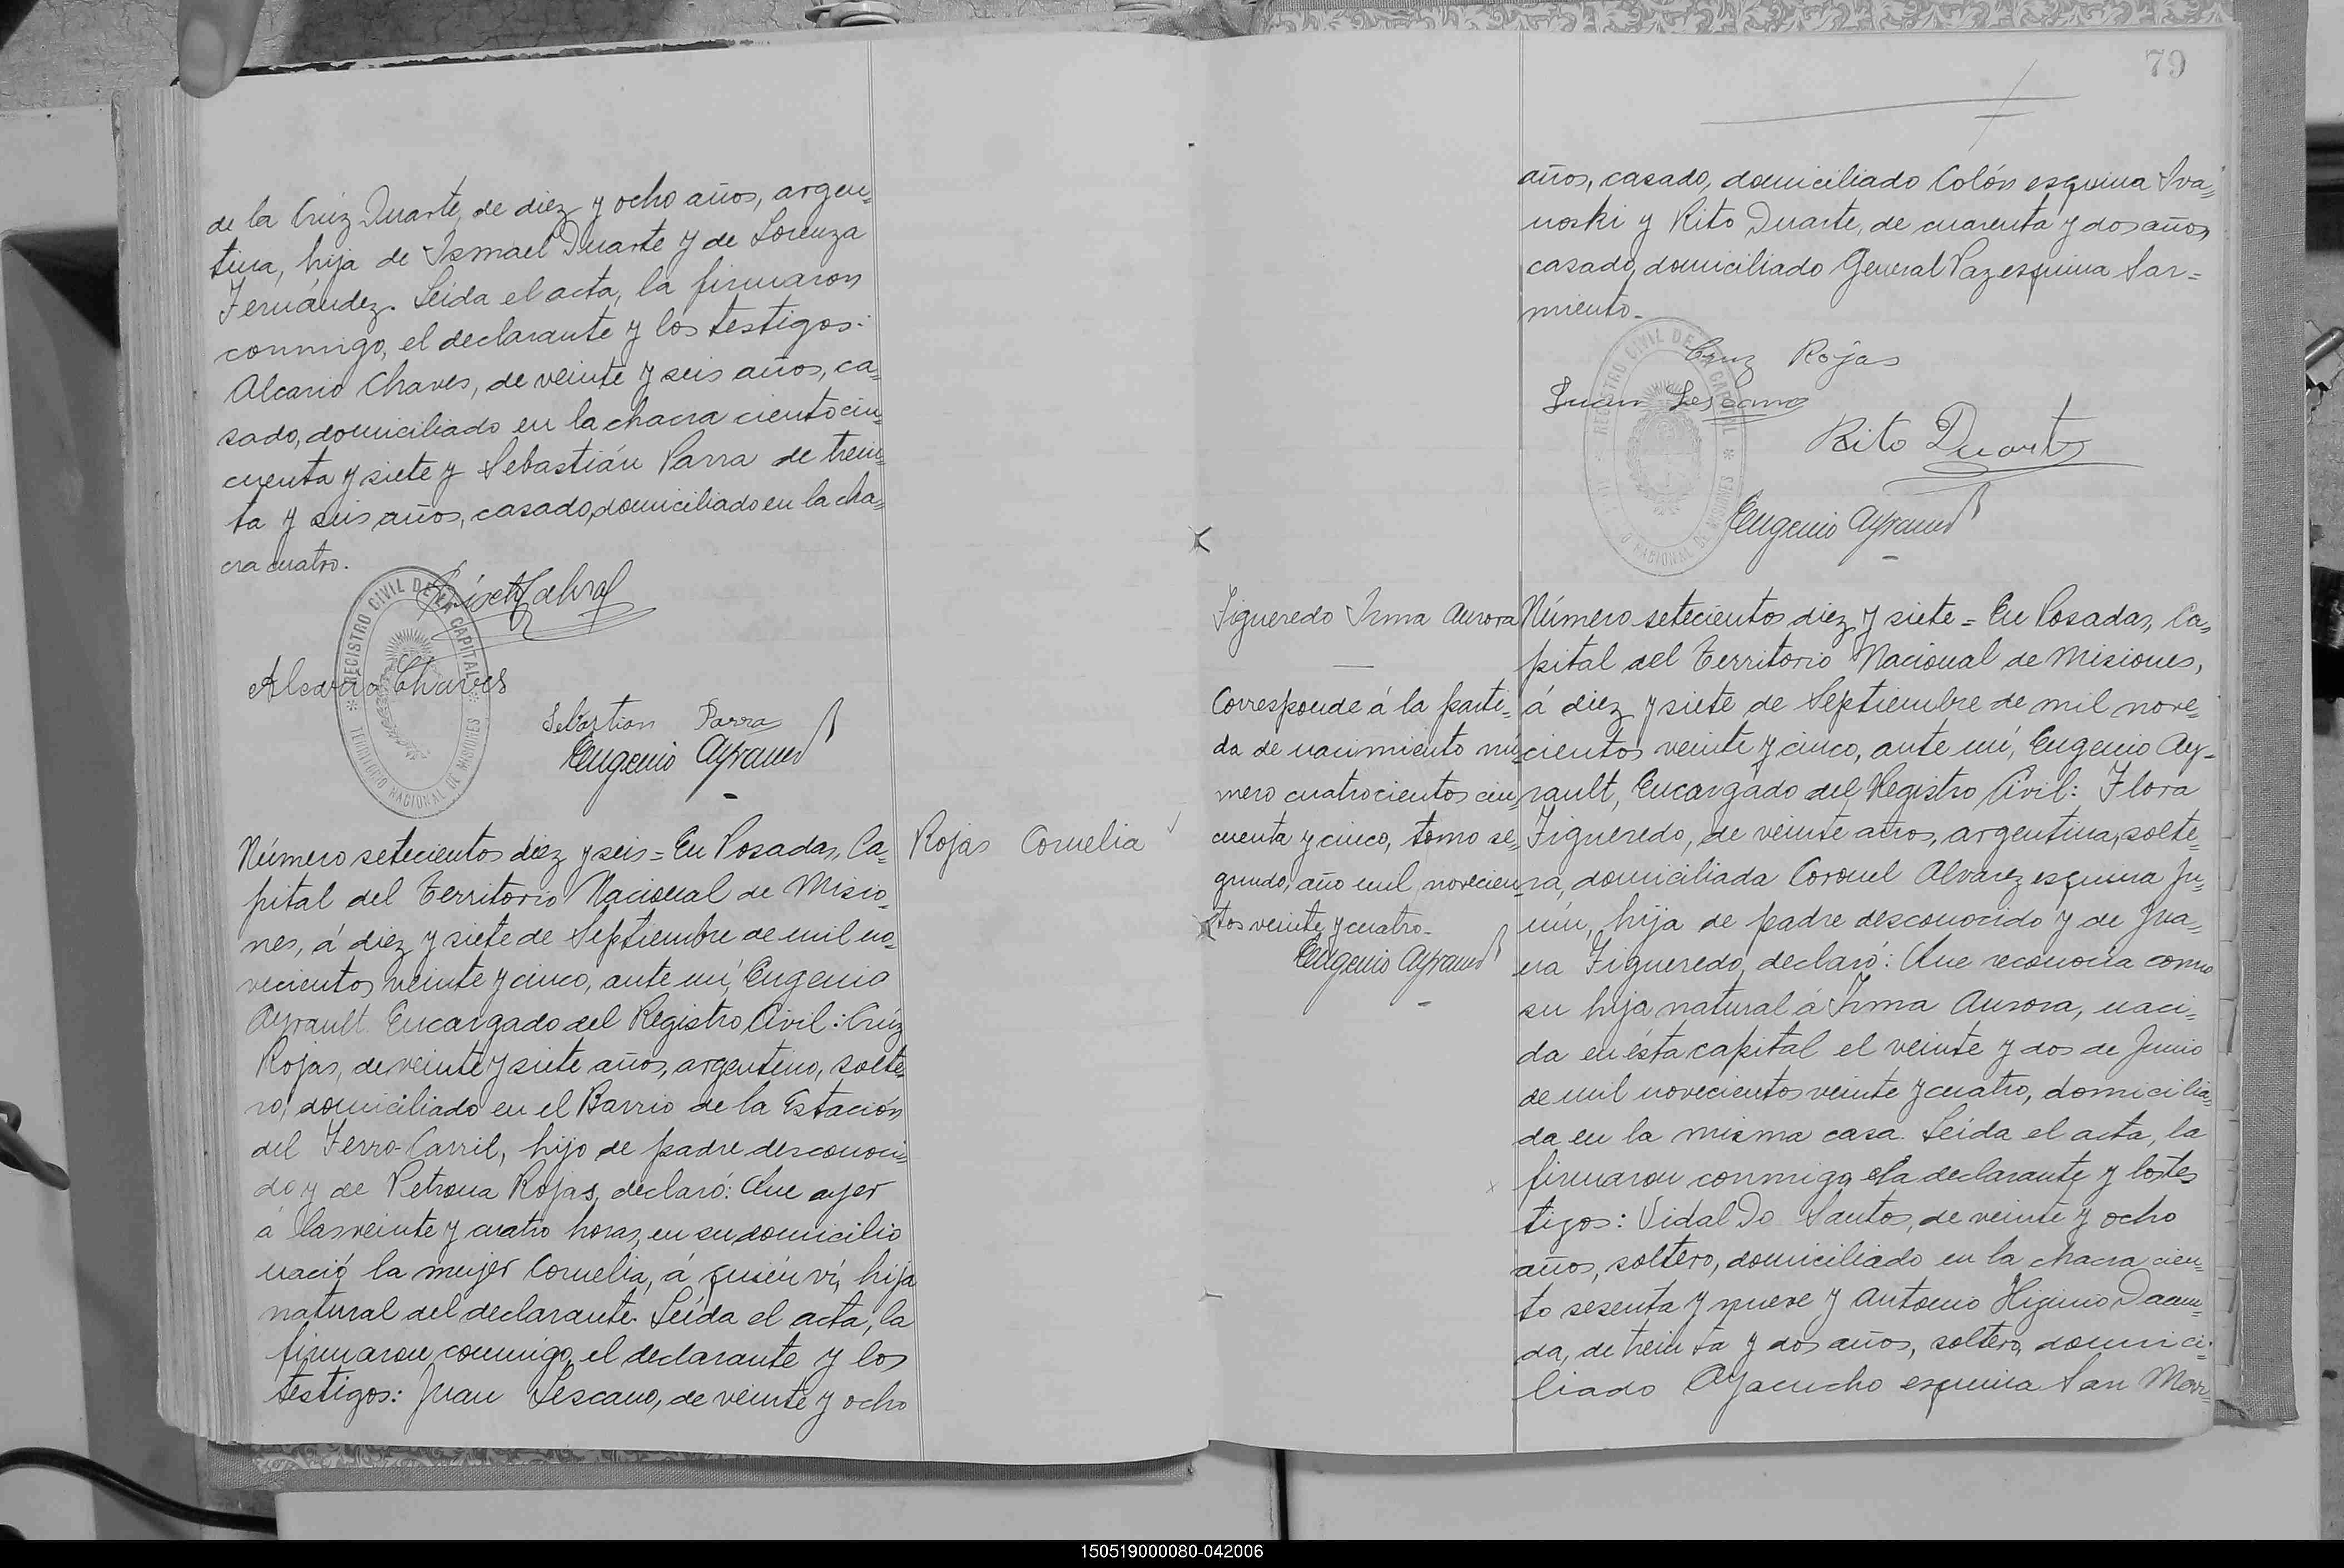 de la Crúz Duarte, de diez y ocho años, argen=
tina, hija de Ismael Duarte y de Lorenza
Fernández. Leída el acta, la firmaron
conmigo, el declarante y los testigos:
Alcario Chaves, de veinte y seis años, ca=
sado, domiciliado en la chacra ciento cin=
cuenta y siete y Sebastián Parra de trein=
ta y seis años, casado, domiciliado en la cha=
cra cuatro.
REGISTRO CIVIL DE LA CAPITAL
TERRITORIO NACIONAL DE MISIONES
Alcario Chaves
Sebastian Parra
Eugenio Ayrault
Número setecientos diez y seis = En Posadas, Ca=
pital del Territorio Nacional de Misio=
nes, á diez y siete de Septiembre de mil no=
vecientos veinte y cinco, ante mí, Eugenio
Ayrault Encargado del Registro Civil: Crúz
Rojas, de veinte y siete años, argentino, solte=
ro, domiciliado en el Barrio de la Estación
del Ferro-Carril, hijo de padre desconoci=
do y de Petrona Rojas, declaró: Que ayer
á las veinte y cuatro horas, en su domicilio
nació la mujer Cornelia, á quién ví, hija
natural del declarante. Leída el acta, la
firmaron conmigo, el declarante y los
testigos: Juan Lescano, de veinte y ocho
Rojas Cornelia
79
años, casado, domiciliado Colón esquina Iva=
noski y Rito Duarte, de cuarenta y dos años,
casado, domiciliado General Paz esquina Sar=
miento.
REGISTRO CIVIL DE LA CAPITAL
TERRITORIO NACIONAL DE MISIONES
Cruz Rojas
Juan Lescano
Rito Duarte
Eugenio Ayrault
Figueredo Irma Aurora
Corresponde á la parti=
da de nacimiento nú=
mero cuatrocientos cin=
cuenta y cinco, tomo se=
gundo, año mil novecien=
tos veinte y cuatro.
Eugenio Ayrault
Número setecientos diez y siete = En Posadas, Ca=
pital del Territorio Nacional de Misiones,
á diez y siete de Septiembre de mil nove=
cientos veinte y cinco, ante mí, Eugenio Ay=
rault, Encargado del Registro Civil: Flora
Figueredo, de veinte años, argentina, solte=
ra, domiciliada Coronel Alvarez esquina Ju=
nín, hija de padre desconocido y de Jua=
na Figueredo, declaró: Que reconocía como
su hija natural á Irma Aurora, naci=
da en ésta capital el veinte y dos de Junio
de mil novecientos veinte y cuatro, domicilia=
da en la misma casa. Leída el acta, la
firmaron conmigo, la declarante y los tes
tigos: Vidal Do Santos, de veinte y ocho
años, soltero, domiciliado en la chacra cien=
to sesenta y nueve y Antonio Higinio
da, de treinta y dos años, soltero, domici=
liado Ayacucho esquina San Mar=
150519000080-042006